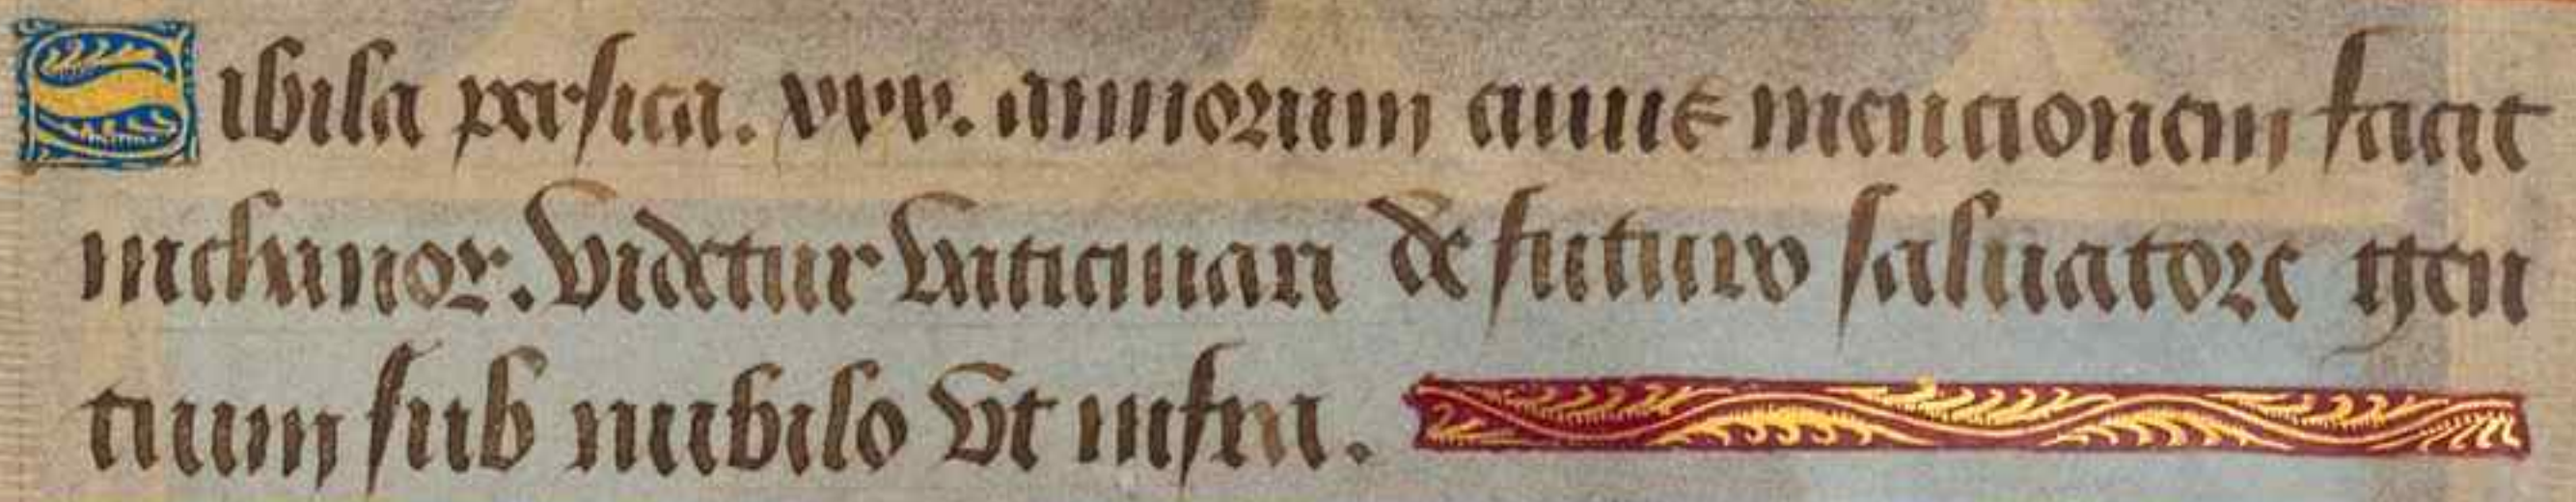 Sibila persica. xxx. annorum cuius mencionem facit
nichanor. Videtur vaticinari de futuro saluatore gen
tium sub nubilo vt infra.